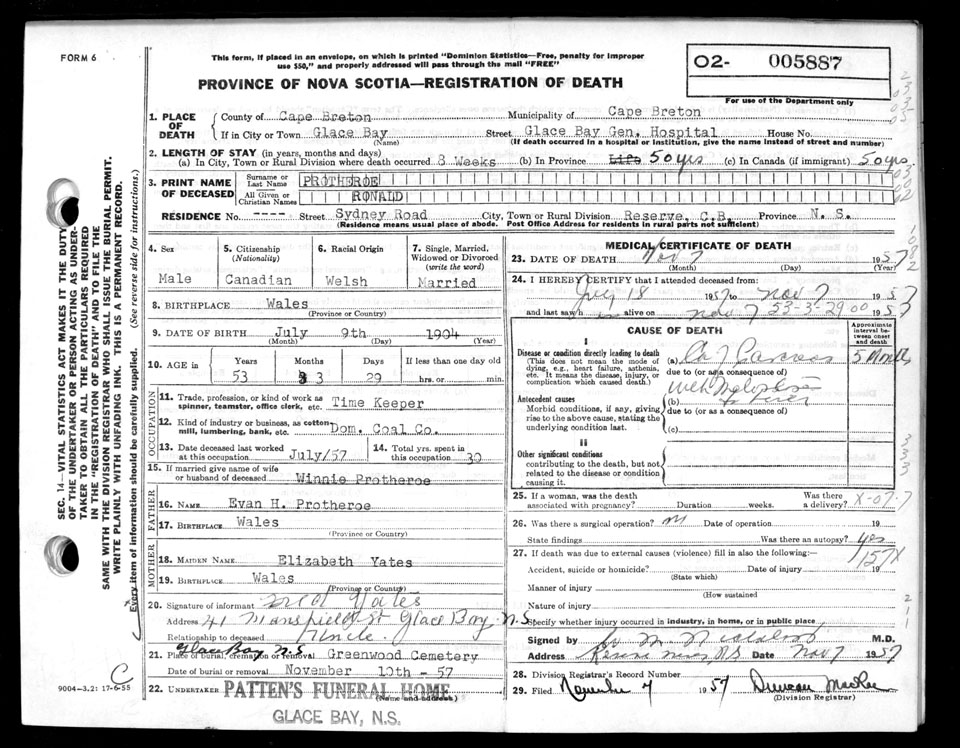 FORM 6
This form, if placed in an envelope, on which is printed "Dominion Statistics—Free, penalty for improper
use $50," and properly addressed will pass through the mail "FREE"
PROVINCE OF NOVA SCOTIA—REGISTRATION OF DEATH
O2- 005887
For use of the Department only
1. PLACE OF DEATH
County of Cape Breton Municipality of Cape Breton
If in City or Town Glace Bay Street Glace Bay Gen. Hospital House No.
(Name) (If death occurred in a hospital or institution, give the name instead of street and number)
2. LENGTH OF STAY (in years, months and days)
(a) In City, Town or Rural Division where death occurred 3 Weeks (b) In Province Life 50 yrs (c) In Canada (if immigrant) 50 yrs
3. PRINT NAME OF DECEASED
Surname or Last Name PROTHEROE
All Given or Christian Names RONALD
RESIDENCE No. ---- Street Sydney Road City, Town or Rural Division Reserve, C.B. Province N. S.
(Residence means usual place of abode. Post Office Address for residents in rural parts not sufficient)
SEC. 14—VITAL STATISTICS ACT MAKES IT THE DUTY
OF THE UNDERTAKER OR PERSON ACTING AS UNDER-
TAKER TO OBTAIN ALL THE PARTICULARS REQUIRED
IN THE "REGISTRATION OF DEATH" AND TO FILE THE
SAME WITH THE DIVISION REGISTRAR WHO SHALL ISSUE THE BURIAL PERMIT.
WRITE PLAINLY WITH UNFADING INK. THIS IS A PERMANENT RECORD.
Every item of information should be carefully supplied. (See reverse side for instructions.)
4. Sex Male
5. Citizenship (Nationality) Canadian
6. Racial Origin Welsh
7. Single, Married, Widowed or Divorced (write the word) Married
8. BIRTHPLACE Wales
(Province or Country)
9. DATE OF BIRTH July 9th 1904
(Month) (Day) (Year)
10. AGE in Years Months Days If less than one day old
53 3 29 hrs. or min.
OCCUPATION
11. Trade, profession, or kind of work as spinner, teamster, office clerk, etc. Time Keeper
12. Kind of industry or business, as cotton mill, lumbering, bank, etc. Dom. Coal Co.
13. Date deceased last worked at this occupation July/57
14. Total yrs. spent in this occupation 30
15. If married give name of wife or husband of deceased Winnie Protheroe
FATHER
16. NAME Evan H. Protheroe
17. BIRTHPLACE Wales
(Province or Country)
MOTHER
18. MAIDEN NAME Elizabeth Yates
19. BIRTHPLACE Wales
(Province or Country)
20. Signature of informant Fred Yates
Address 41 Mansfield St Glace Bay N.S
Relationship to deceased Uncle.
Glace Bay N.S
21. Place of burial, cremation or removal Greenwood Cemetery
Date of burial or removal November 10th - 57
22. UNDERTAKER PATTEN'S FUNERAL HOME
(Name and address)
GLACE BAY, N.S.
C
9004-3.2: 17-6-55
MEDICAL CERTIFICATE OF DEATH
23. DATE OF DEATH Nov 7 1957
(Month) (Day) (Year)
24. I HEREBY CERTIFY that I attended deceased from:
July 18 1957 to Nov 7 1957
and last saw h im alive on Nov 7 1957
53-3-29 00
CAUSE OF DEATH
Approximate interval between onset and death
I
Disease or condition directly leading to death
(This does not mean the mode of dying, e.g., heart failure, asthenia, etc. It means the disease, injury, or complication which caused death.)
(a) 5 Months
due to (or as a consequence of)
Antecedent causes
Morbid conditions, if any, giving rise to the above cause, stating the underlying condition last.
(b) with
due to (or as a consequence of)
(c)
II
Other significant conditions
contributing to the death, but not related to the disease or condition causing it.
25. If a woman, was the death associated with pregnancy? Duration weeks. Was there a delivery? X-07-7
26. Was there a surgical operation? no Date of operation 19
State findings Was there an autopsy? yes
27. If death was due to external causes (violence) fill in also the following:— 157X
Accident, suicide or homicide? Date of injury 19
(State which)
Manner of injury
(How sustained
Nature of injury
Specify whether injury occurred in industry, in home, or in public place
Signed by M.D.
Address Date Nov 7 1957
28. Division Registrar's Record Number
29. Filed November 7 1957 Duncan MacRae
(Division Registrar)